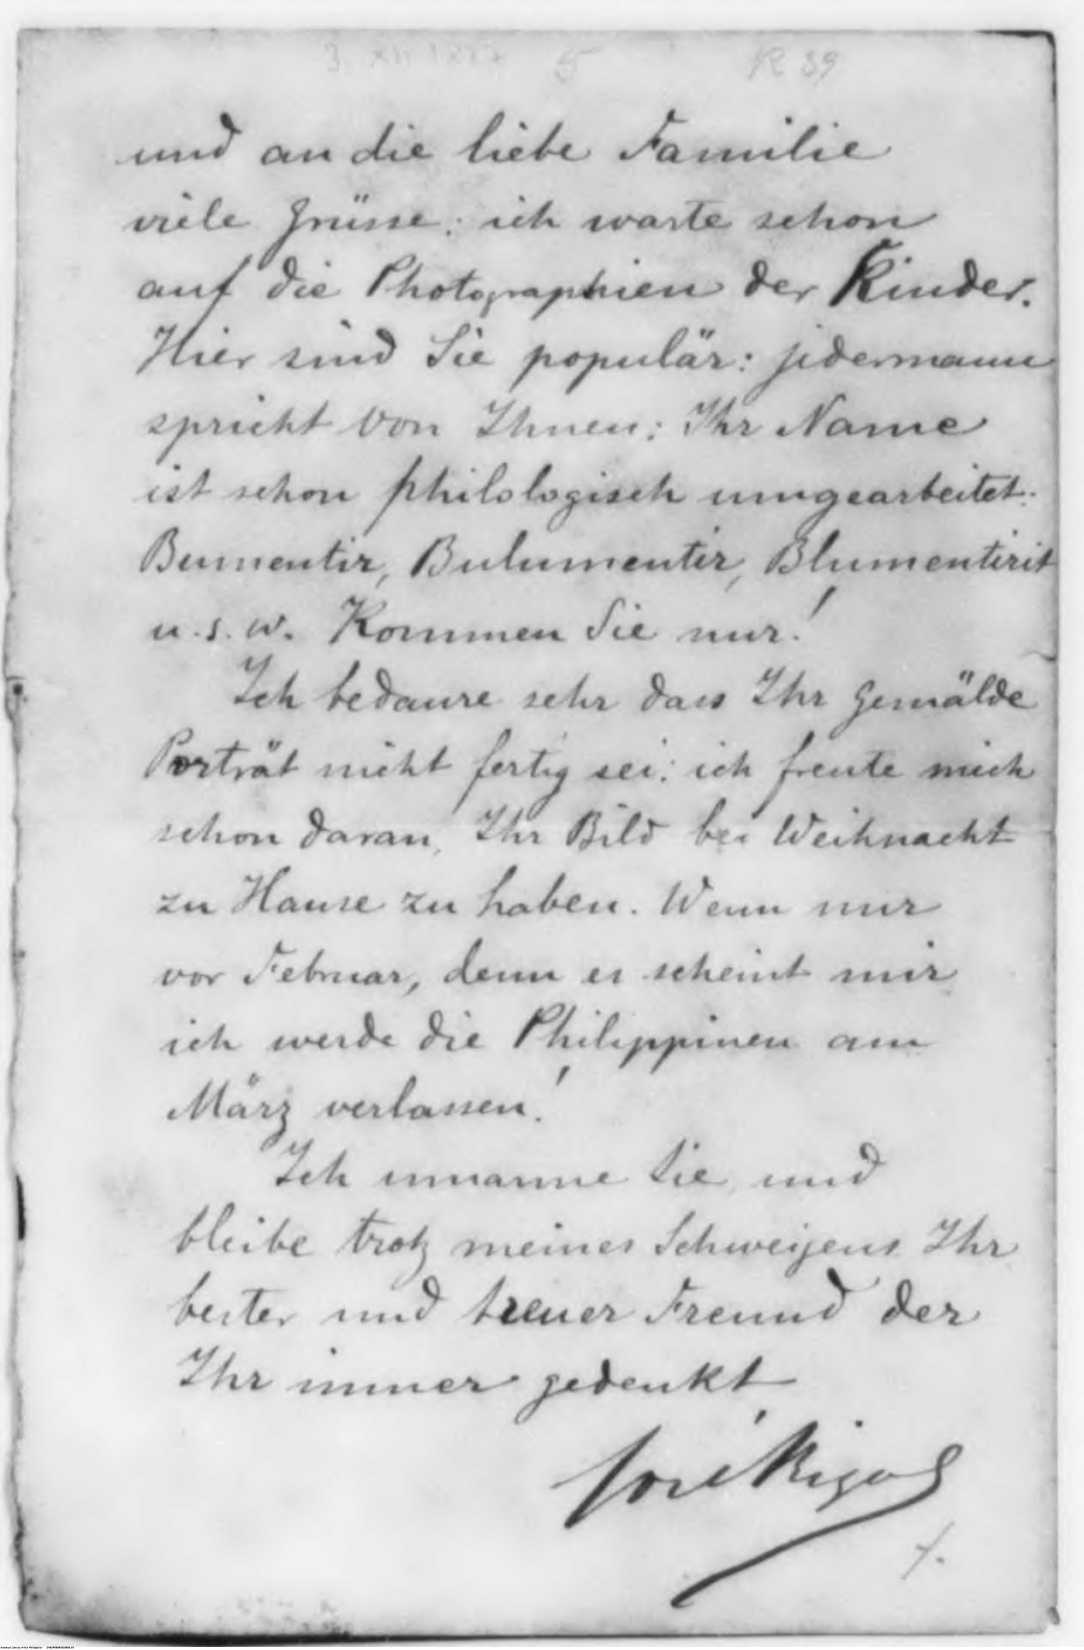 5
R 39
und an die liebe Familie
viele Grüsse: ich warte schon
auf die Photographien der Kinder.
Hier sind Sie populär: jedermann
spricht von Ihnen; Ihr Name
ist schon philologisch umgearbeitet:
Bumentir, Bulumentir, Blumentirit
u. s. w. Kommen Sie nur!
Ich bedaure sehr dass Ihr Gemälde
Porträt nicht fertig sei: ich freute mich
schon daran, Ihr Bild bei Weihnacht
zu Hause zu haben. Wenn nur
vor Februar, denn es scheint mir
ich werde die Philippinen am
März verlassen!
Ich umarme Sie und
bleibe trotz meines Schweigens Ihr
bester und treuer Freund der
Ihr immer gedenkt
José Rizal